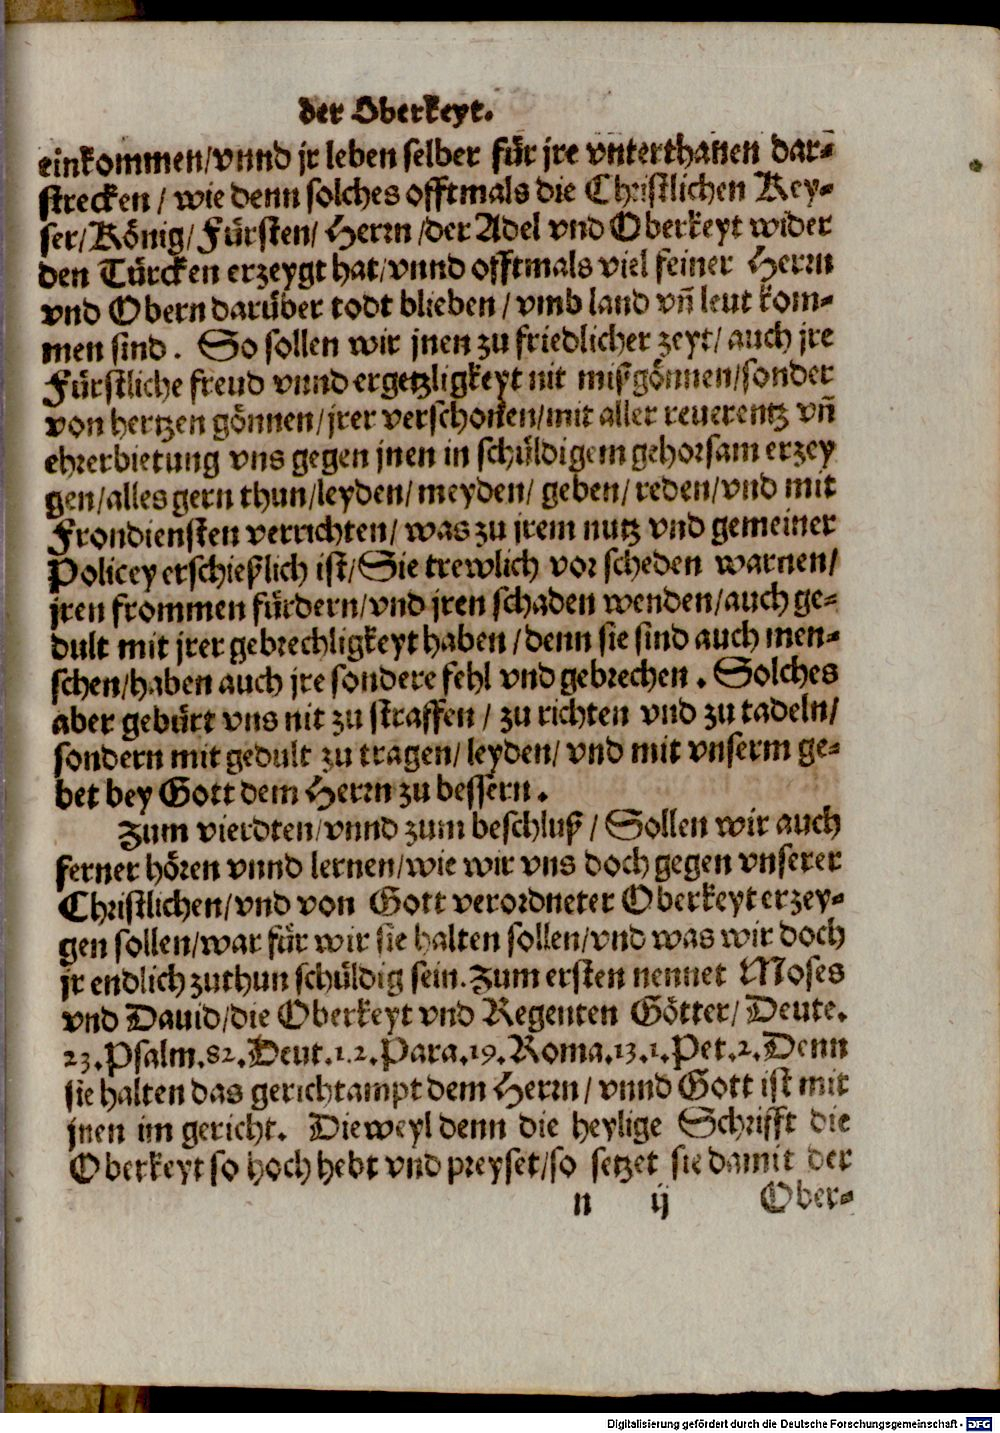 der Oberkeyt.
einkommen/vnnd jr leben selber für jre vnterthanen dar-
strecken / wie denn solches offtmals die Christlichen Key-
ser/König/Fürsten/ Herrn /der Adel vnd Oberkeyt wider
den Türcken erzeygt hat/vnnd offtmals viel feiner Herrn
vnd Obern darüber todt blieben / vmb land vñ leut kom-
men sind. So sollen wir jnen zu friedlicher zeyt/ auch jre
Fürstliche freud vnnd ergetzligkeyt nit mißgönnen/sonder
von hertzen gönnen/jrer verschonen/mit aller reuerentz vñ
ehrerbietung vns gegen jnen in schüldigem gehorsam erzey
gen/alles gern thun/leyden/meyden/ geben/ reden/vnd mit
Frondiensten verrichten/ was zu jrem nutz vnd gemeiner
Policey erschießlich ist/Sie trewlich vor scheden warnen/
jren frommen fürdern/vnd jren schaden wenden/auch ge-
dult mit jrer gebrechligkeyt haben /denn sie sind auch men-
schen/haben auch jre sondere fehl vnd gebrechen. Solches
aber gebürt vns nit zu straffen / zu richten vnd zu tadeln/
sondern mit gedult zu tragen/ leyden/ vnd mit vnserm ge-
bet bey Gott dem Herrn zu bessern.
Zum vierdten/vnnd zum beschluß / Sollen wir auch
ferner hören vnnd lernen/wie wir vns doch gegen vnserer
Christlichen/vnd von Gott verordneter Oberkeyt erzey-
gen sollen/war für wir sie halten sollen/vnd was wir doch
jr endlich zuthun schüldig sein. Zum ersten nennet Moses
vnd Dauid/die Oberkeyt vnd Regenten Götter/ Deute.
23.Psalm.82.Deut.1.2.Para.19.Roma.13.1.Pet.2.Denn
sie halten das gerichtampt dem Herrn / vnnd Gott ist mit
jnen im gericht. Dieweyl denn die heylige Schrifft die
Oberkeyt so hoch hebt vnd preyset/so setzet sie damit der
n ij Ober-
Digitalisierung gefördert durch die Deutsche Forschungsgemeinschaft - DFG